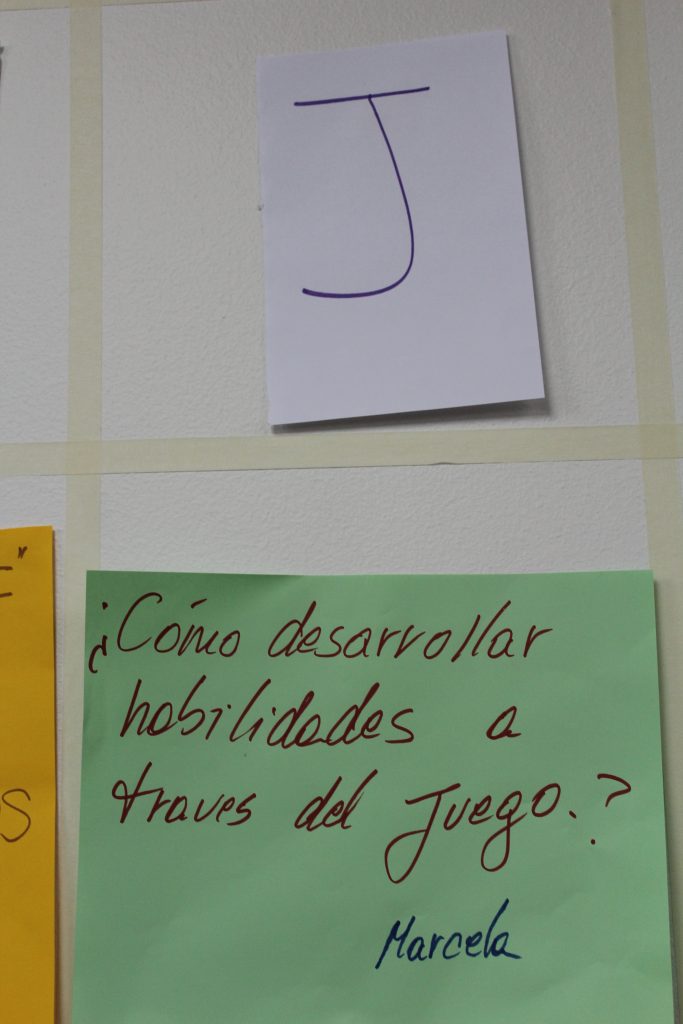 J
¿Cómo desarrollar
habilidades a
traves del Juego.?
Marcela
S